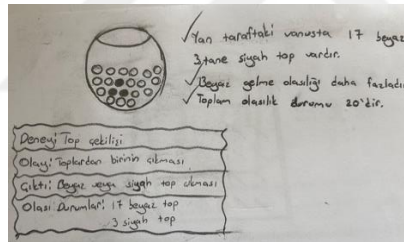 Yan taraftaki vanusta 17 beyaz
3 tane siyah top vardır.
Beyaz gelme olasılığı daha fazladır
Toplam olasılık durumu 20'dir.
Deney: Top çekilişi
Olay: Toplardan birinin çıkması
Çıktı: Beyaz veya siyah top çıkması
Olası Durumlar: 17 beyaz top
3 siyah top